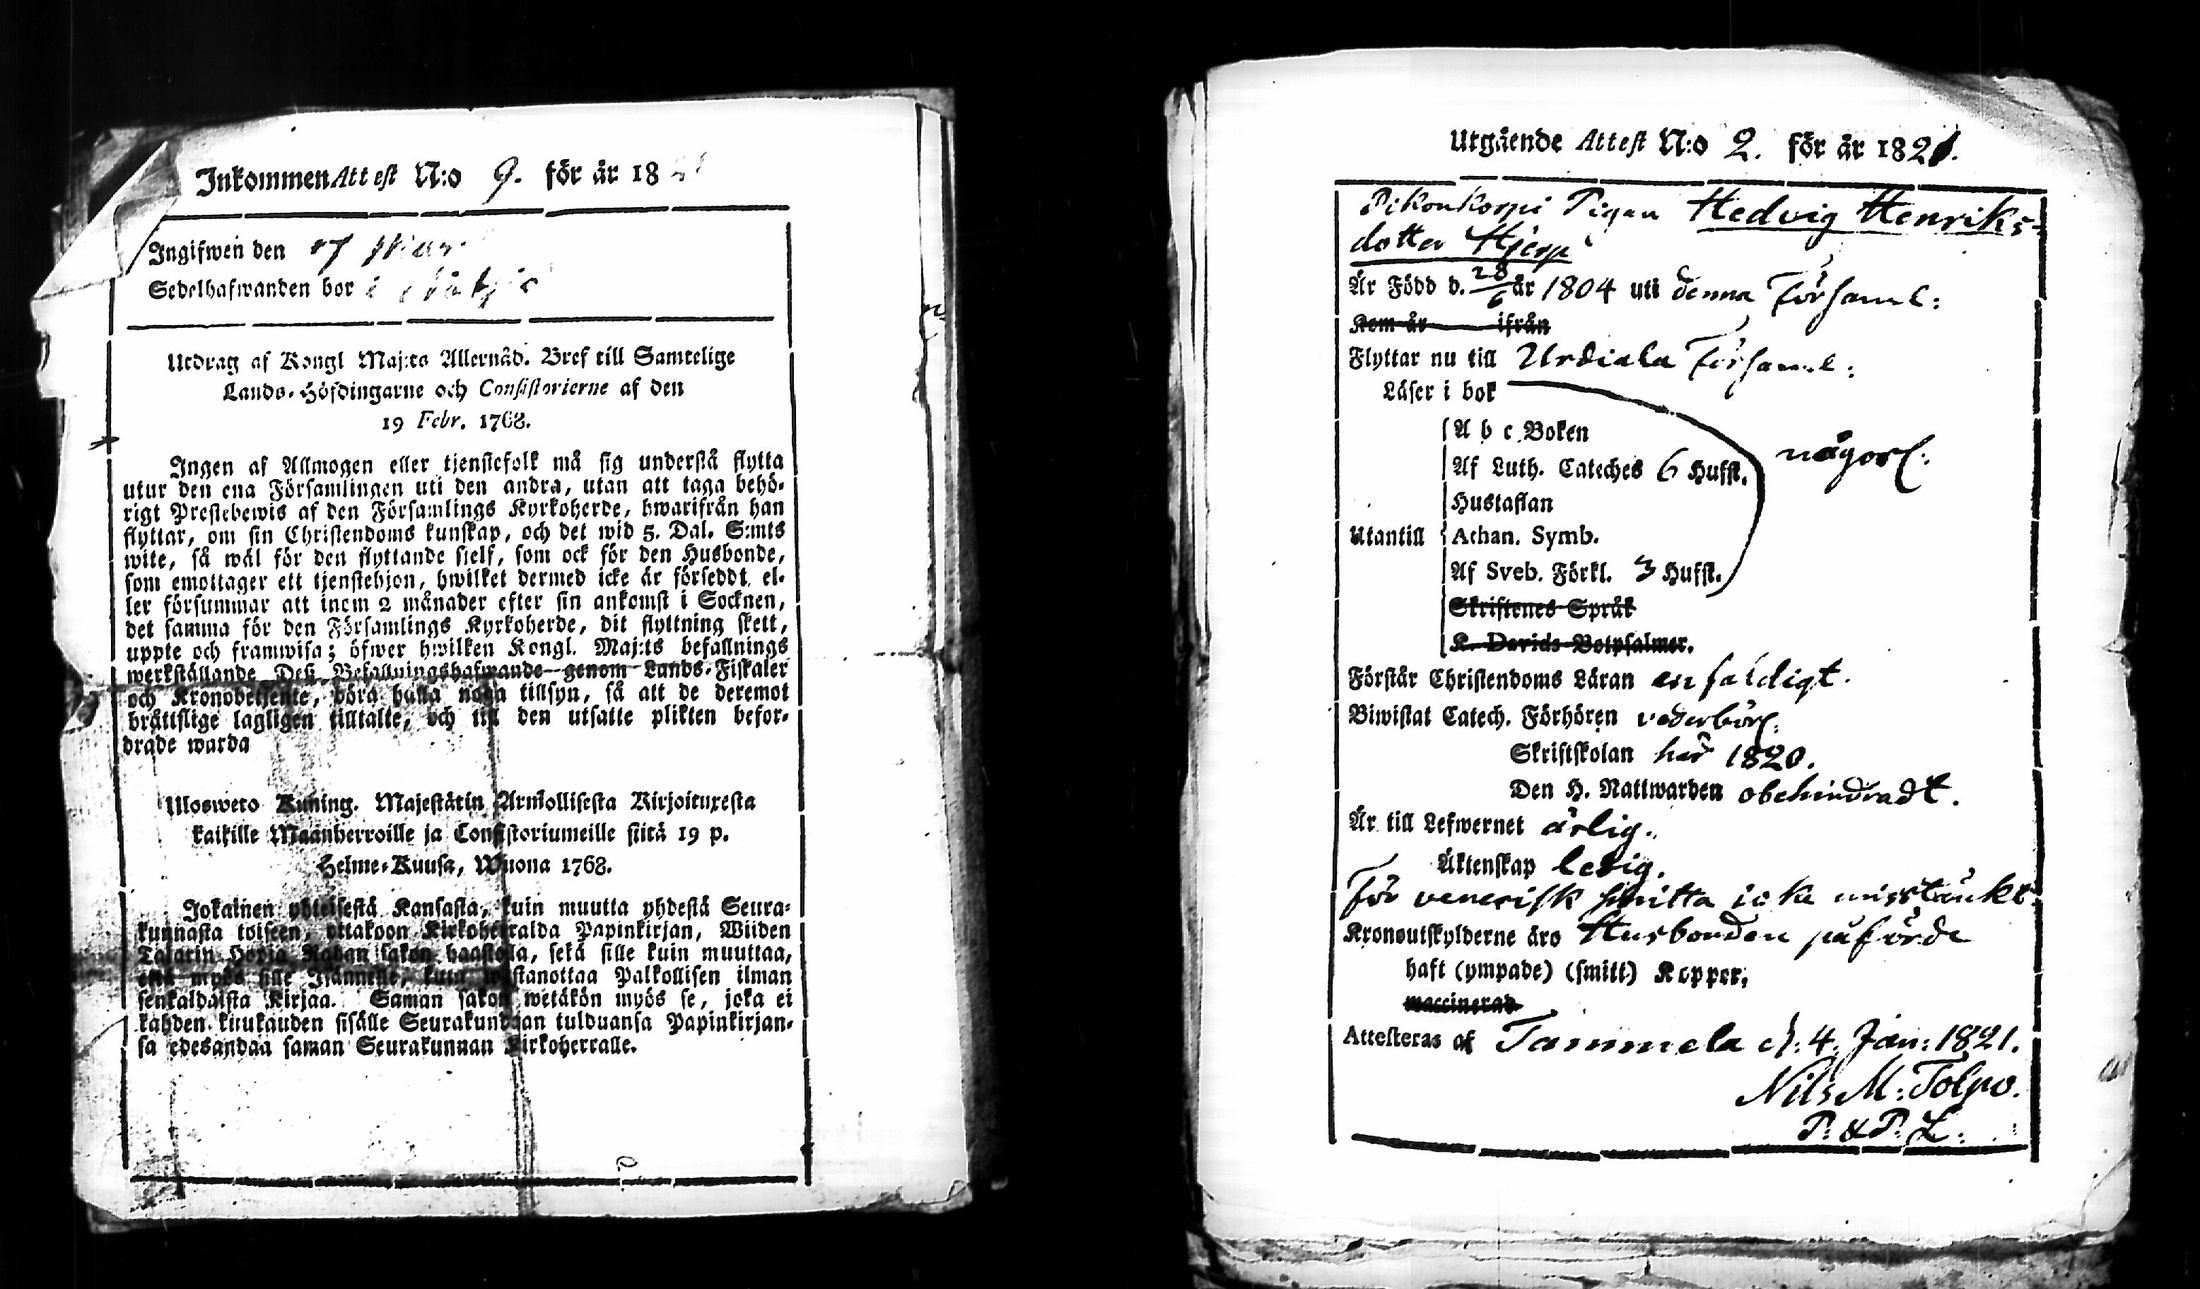 Inkommen Attest N:o 9. för år 18
Ingifwen den 17
Sedelhafwanden bor i
Utdrag af Kongl Maj:ts Allernåd. Bref till Samtelige
Lands-Höfdingarne och Consistorierne af den
19 Febr. 1768.
Ingen af Allmogen eller tjenstefolk må sig understå flytta
utur den ena Församlingen uti den andra, utan att taga behö-
rigt Prestebewis af den Församlings Kyrkoherde, hwarifrån han
flyttar, om sin Christendoms kunskap, och det wid 5. Dal. S:mts
wite, så wäl för den flyttande sielf, som ock för den Husbonde,
som emottager ett tjenstehjon, hwilket dermed icke är försedt, el-
ler försummar att inom 2 månader efter sin ankomst i Socknen,
det samma för den Församlings Kyrkoherde, dit flyttning skett,
uppte och framwisa; öfwer hwilken Kongl. Maj:ts befallnings
werkställande Deß Befallningshafwande genom Lands-Fiskaler
och Kronobetjente, böra hålla noga tillsyn, så att de deremot
bråttslige lagligen tilltalte, och till den utsatte plikten befor-
drade warda
Uloswето Kuning. Majestätin Armollisesta Kirjoituxesta
kaikille Maanherroille ja Consistoriumeille siitä 19 p.
Helme-Kuusa, Wuona 1768.
Jokainen yhteisestä Kansasta, kuin muutta yhdestä Seura-
kunnasta toiseen, ottakoon Kirkoherralda Papinkirjan, Wiiden
Talarin Hopia Rahan sakon haastolla, sekä sille kuin muuttaa,
että myös sille Isännelle, kuin wastanottaa Palkollisen ilman
senkaldaista Kirjaa. Saman sakon wetäkön myös se, joka ei
kahden kuukauden sisälle Seurakundaan tulduansa Papinkirjan-
sa edesandaa saman Seurakunnan Kirkoherralle.
Utgående Attest N:o 2. för år 1821.
Pikonkorpi Pigan Hedvig Henriks-
dotter Hjerp
Är Född d. 28/6 år 1804 uti denna Församl:
Kom år ifrån
Flyttar nu till Urdiala Församl:
Läser i bok
A b c Boken
någorl:
Af Luth. Cateches 6 Hufst.
Hustaflan
Utantill Athan. Symb.
Af Sveb. Förkl. 3 Hufst.
Skriftenes Språk
K. Davids Botpsalmer.
Förstår Christendoms Läran enfaldigt.
Biwistat Catech. Förhören vederbörl:
Skriftskolan här 1820.
Den H. Nattwarden obehindradt.
Är till Lefwernet ärlig.
Äktenskap ledig.
För venerisk smitta icke misstänkt.
Kronoutskylderne äro Husbonden påförde
haft (ympade) (smitt) Koppor,
waccinerad
Attesteras af Tammela d: 4. Jan: 1821.
Nils M: Tolpo.
P: & P: L: